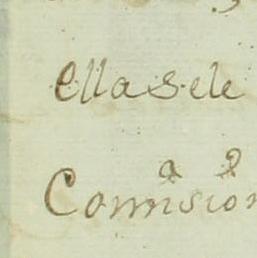 ellas ele
Comision